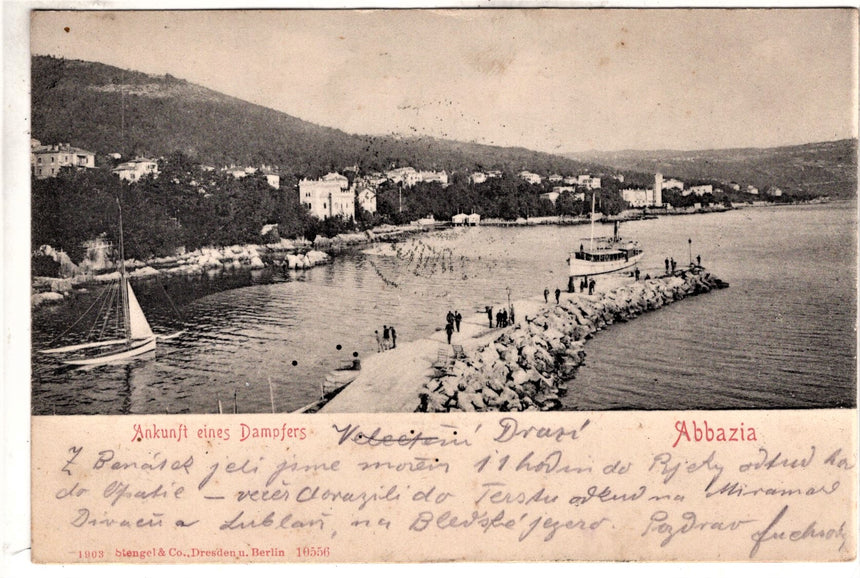 Ankunft eines Dampfers
Drazí
Abbazia
Z Benátek jeli jsme mořem 11 hodin do Rjeky odtud
do Opatie – večer dorazili do Terstu odkud na Miramar
Divaču a Lublaň, na Bledské jezero. Pozdrav
1903 Stengel & Co., Dresden u. Berlin 10556